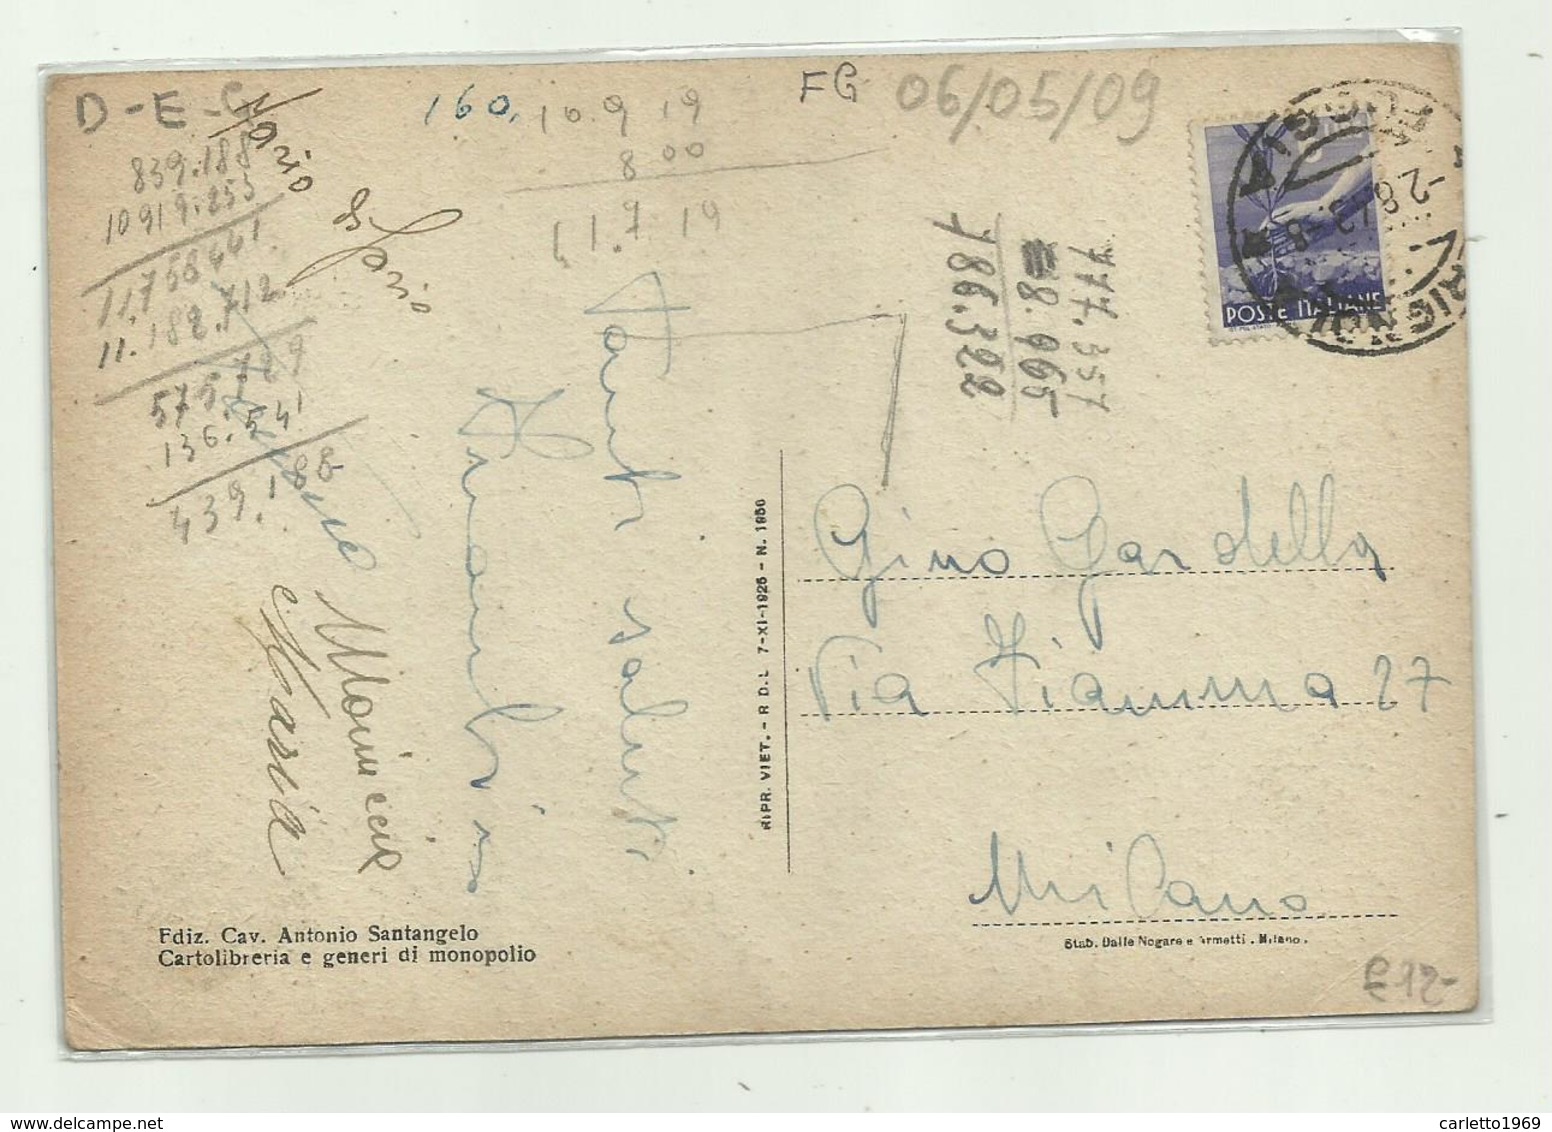 D-E-C
839.188
10919.253
11758441
11.182.712
575.729
136.541
439.188
160.
10.9 19
8 00
11.7 19
FG
06/05/09
777.357
8.965
786.322
POSTE ITALIANE
FOGGIA
Tanti saluti
Mario
e Maria
RIPR. VIET. - R D.L 7-XI-1925 - N. 1956
Gino Gardella
Via Fiamma 27
Milano
Ediz. Cav. Antonio Santangelo
Cartolibreria e generi di monopolio
Stab. Dalle Nogare e Armetti . Milano.
€12-
carletto1969